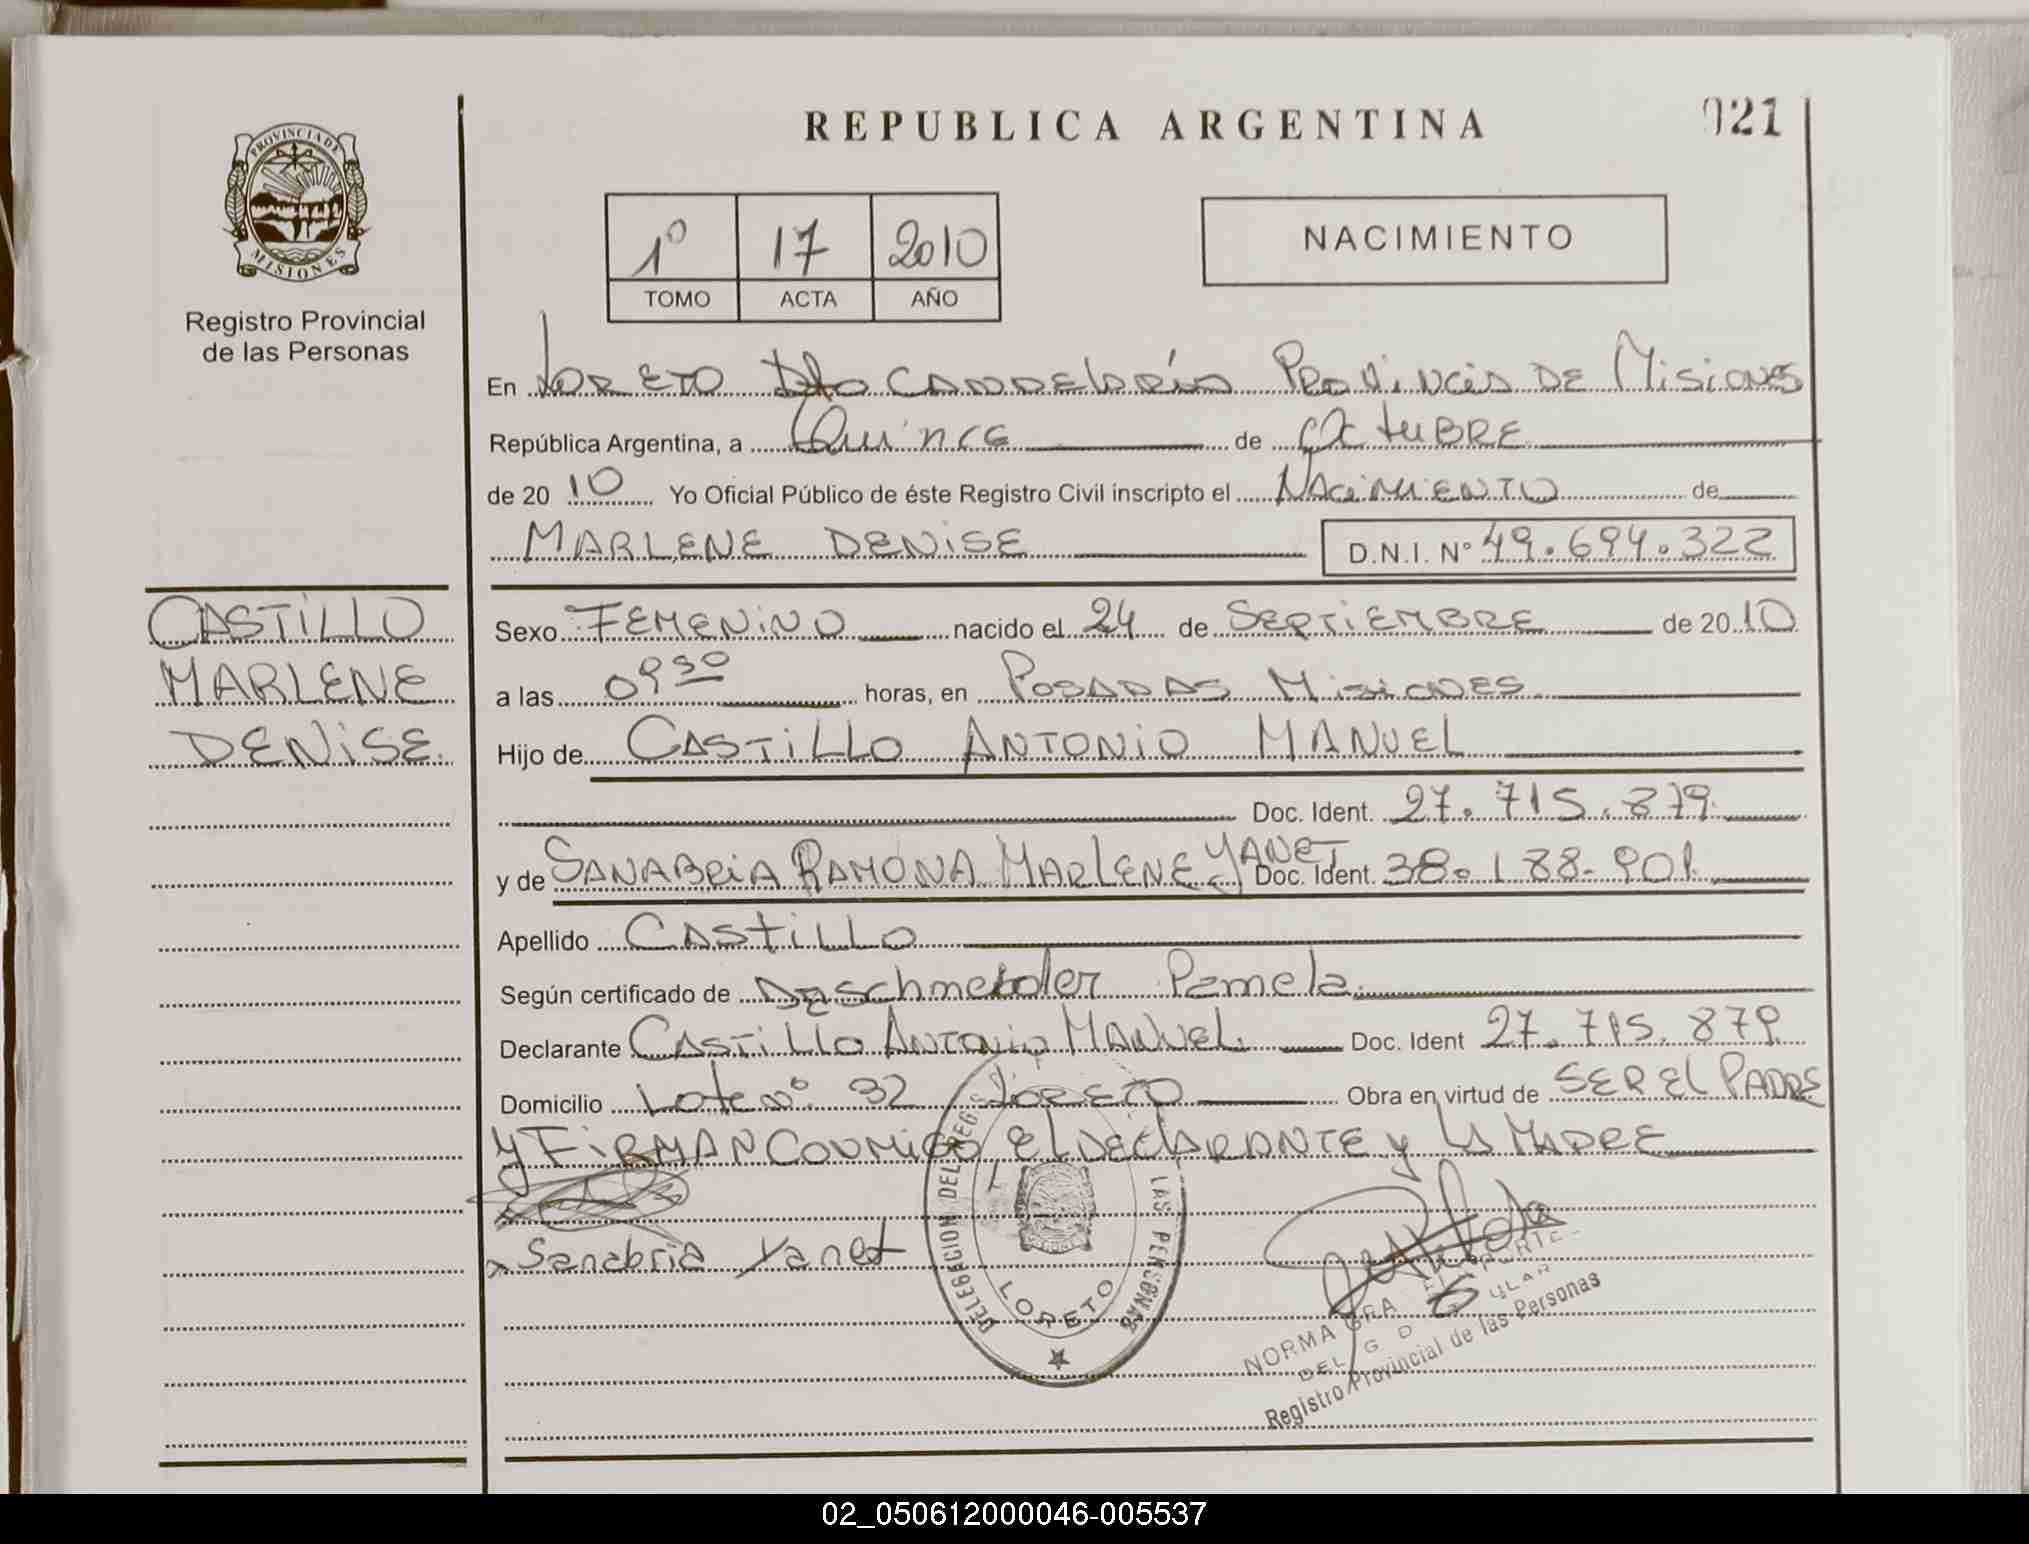 REPUBLICA ARGENTINA
021
PROVINCIA DE
MISIONES
Registro Provincial
de las Personas
1º 17 2010
TOMO ACTA AÑO
NACIMIENTO
En LORETO Dto CANDELARIA PROVINCIA DE MISIONES
República Argentina, a Quince de OctuBRE
de 2010 Yo Oficial Público de éste Registro Civil inscripto el NACIMIENTO de
MARLENE DENISE D.N.I. Nº 49.694.322
CASTILLO
MARLENE
DENISE
Sexo FEMENINO nacido el 24 de SEPTIEMBRE de 2010
a las 09 30 horas, en POSADAS MISIONES
Hijo de CASTILLO ANTONIO MANUEL
Doc. Ident. 27.715.879
y de SANABRIA RAMONA MARLENE YANET Doc. Ident. 38.188.901
Apellido CASTILLO
Según certificado de Daschmeider Pamela
Declarante CASTILLO ANTONIO MANUEL Doc. Ident 27.715.879
Domicilio Lote Nº 32 LORETO Obra en virtud de SER EL PADRE
Y FIRMAN CONMIGO EL DECLARANTE Y LA MADRE
Sanabria Yanet
DELEGACION DEL REG LAS PERSONAS
LORETO
NORMA GRA
DEL
Registro Provincial de las Personas
02_050612000046-005537